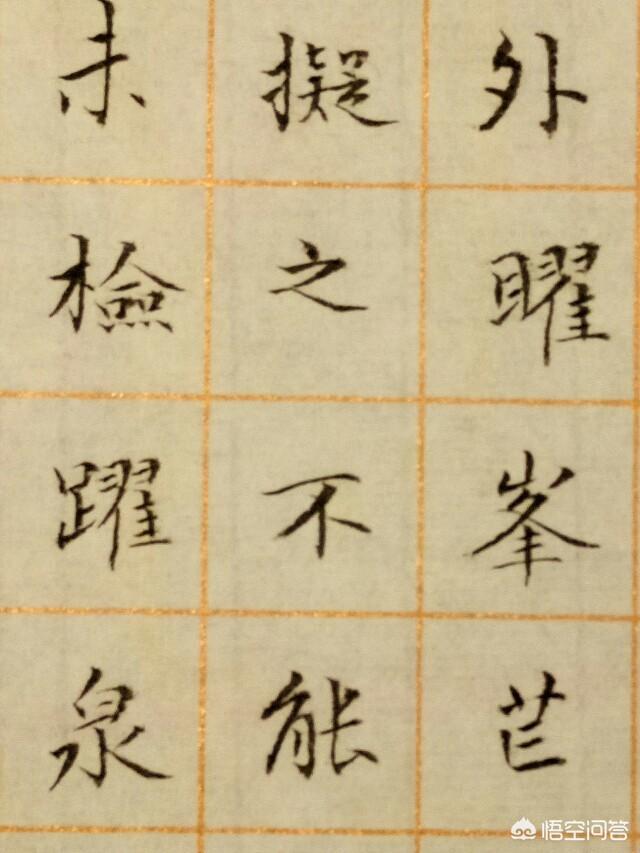 外曜峯芒
擬之不能
未檢躍泉
悟空问答